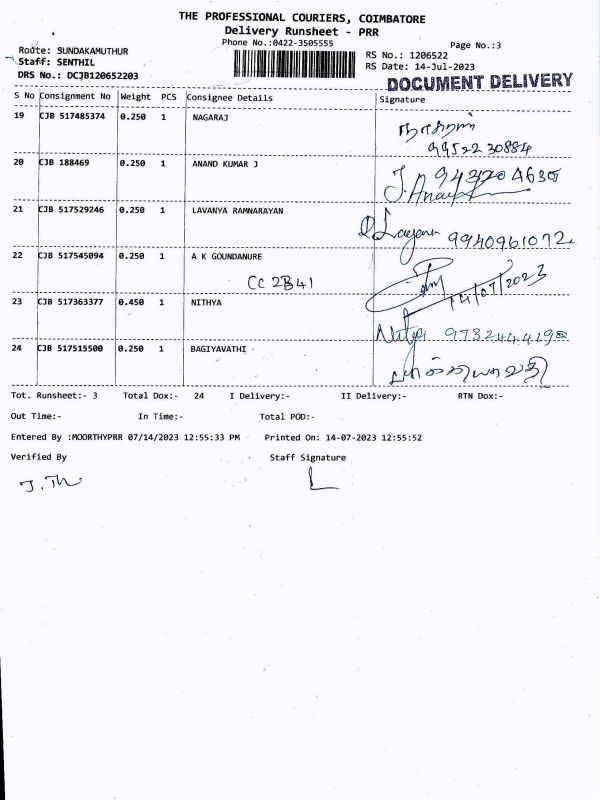 THE PROFESSIONAL COURIERS, COIMBATORE
Delivery Runsheet - PRR
Phone No.:0422-3505555
Page No.:3
Route: SUNDAKAMUTHUR
RS No.: 1206522
Staff: SENTHIL
RS Date: 14-Jul-2023
DRS No.: DCJB120652203
DOCUMENT DELIVERY
S No Consignment No Weight PCS Consignee Details Signature
19 CJB 517485374 0.250 1 NAGARAJ
நாகராஜ்
99522 30884
20 CJB 188469 0.250 1 ANAND KUMAR J
J. Anand
21 CJB 517529246 0.250 1 LAVANYA RAMNARAYAN
9940961072
22 CJB 517545094 0.250 1 A K GOUNDANURE
CC 2B41
14/07/2023
23 CJB 517363377 0.450 1 NITHYA
Nitya 9732444190
24 CJB 517515500 0.250 1 BAGIYAVATHI
பாக்கியாவதி
Tot. Runsheet:- 3 Total Dox:- 24 I Delivery:- II Delivery:- RTN Dox:-
Out Time:- In Time:- Total POD:-
Entered By :MOORTHYPRR 07/14/2023 12:55:33 PM Printed On: 14-07-2023 12:55:52
Verified By Staff Signature